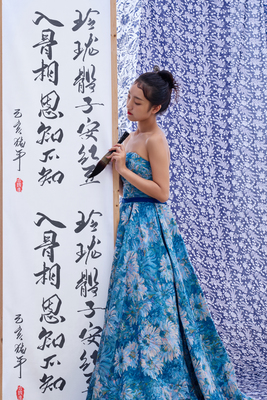 玲珑骰子安红豆
入骨相思知不知
玲珑骰子安红
入骨相思知不知